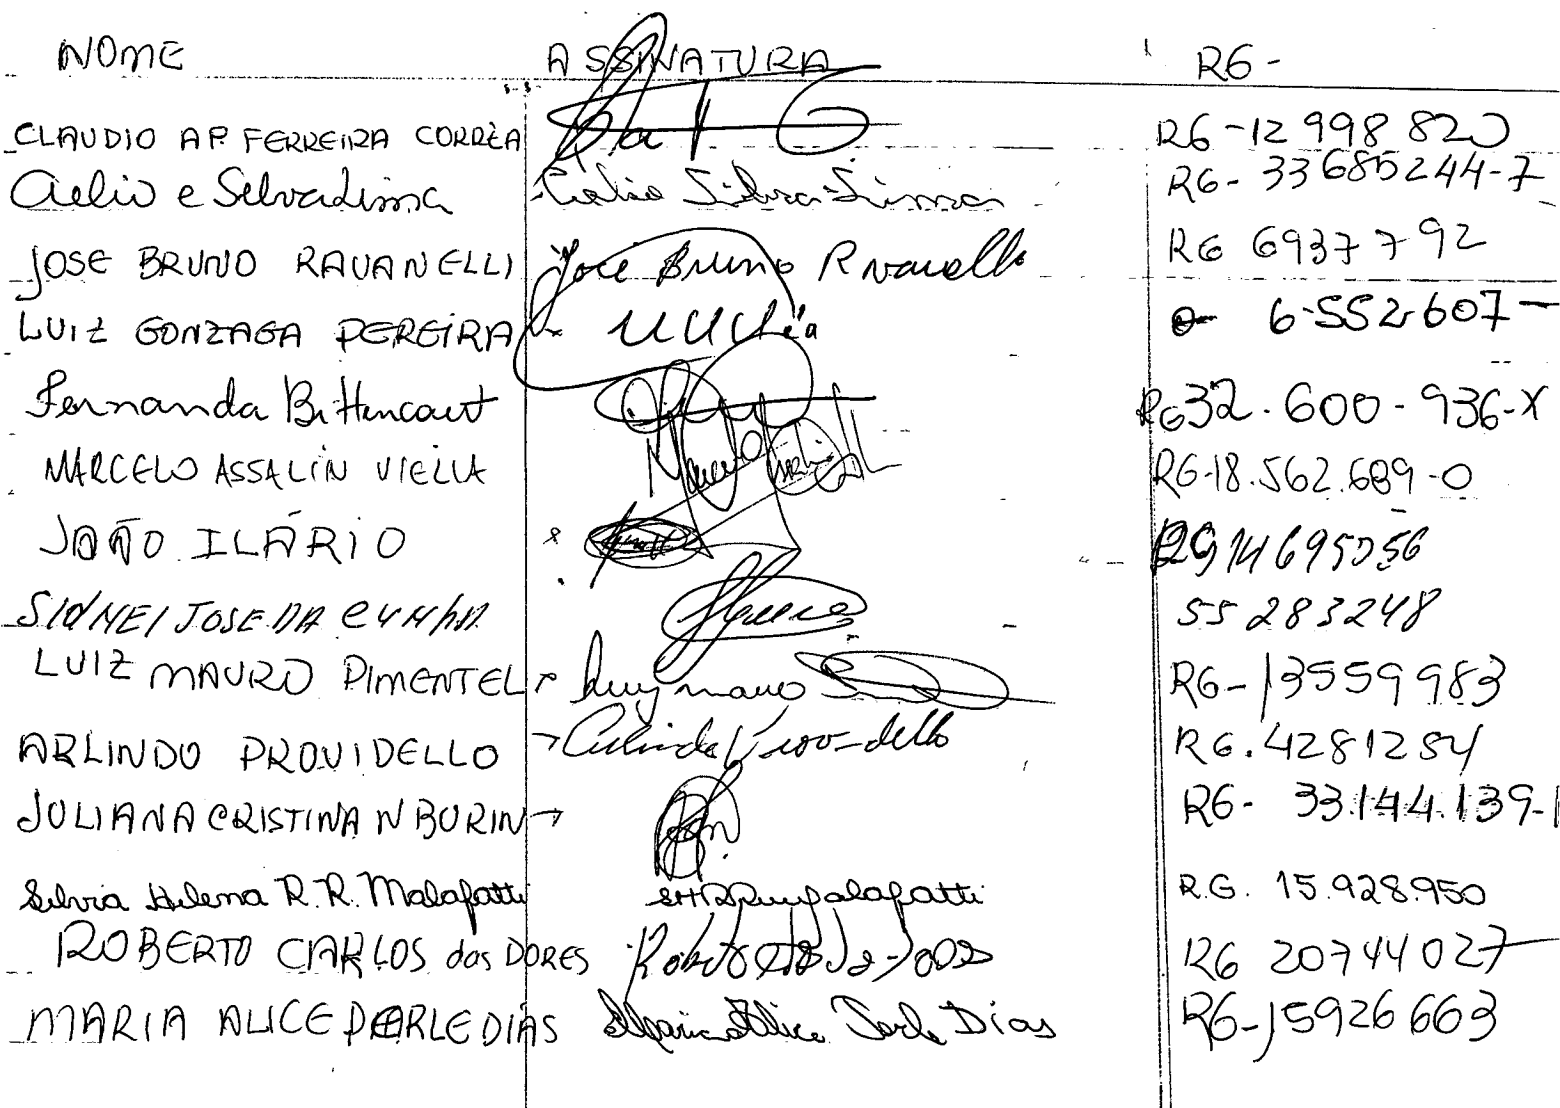 NOME ASSINATURA RG -
CLAUDIO AP. FERREIRA CORRÊA RG -12 998 820
Celio e Silva Lima Celio Silva Lima RG- 33685244-7
JOSE BRUNO RAVANELLI José Bruno Ravanelli RG 6937792
LUIZ GONZAGA PEREIRA 6.552.607
Fernanda Bittencourt RG 32.600-936-X
MARCELO ASSALIN VIELLA Marcelo RG-18.562.689-0
JOÃO ILÁRIO RG 14695056
SIDNEI JOSE DA CUNHA 55 283248
LUIZ MAURO PIMENTEL Luiz mauro RG-13559983
ARLINDO PROVIDELLO Arlindo Providello RG.4281254
JULIANA CRISTINA N BURIN RG- 33.144.139-1
Silvia Helena R.R. Malafatti SHRR Malafatti R.G. 15.928.950
ROBERTO CARLOS dos DORES RG 20744027
MARIA ALICE PERLE DIAS Maria Alice Perle Dias RG-15926663